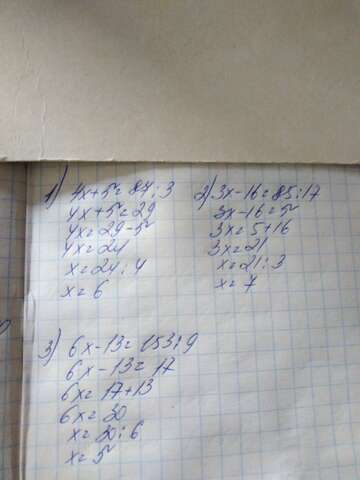 1) 4x+5=87:3
4x+5=29
4x=29-5
4x=24
x=24:4
x=6
2) 3x-16=85:17
3x-16=5
3x=5+16
3x=21
x=21:3
x=7
3) 6x-13=153:9
6x-13=17
6x=17+13
6x=30
x=30:6
x=5